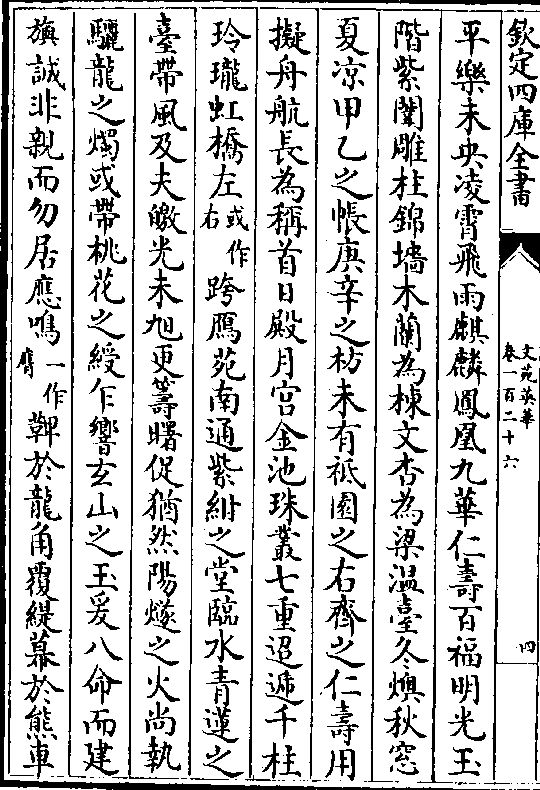 欽定四庫全書
文苑英華
卷一百二十六
四
平樂未央凌霄飛雨麒麟鳳凰九華仁壽百福明光玉
階紫闥雕柱錦墻木蘭為棟文杏為梁温室冬燠秋窓
夏凉甲乙之帳庚辛之枋未有祗園之右齊之仁壽用
擬舟航長為稱首日殿月宫金池珠叢七重迢遞千柱
玲瓏虹橋左或作右跨鴈苑南通紫紺之堂臨水青蓮之
臺帶風及夫皦光未旭更籌曙促猶然陽燧之火尚執
驪龍之燭或帶桃花之綬乍響玄山之玉爰八命而建
旟誠非親而勿居應鳴一作膺鞞於龍角覆緹幕於熊車